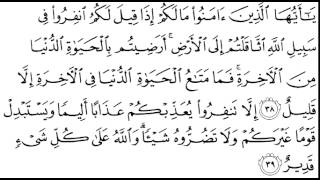 يَـٰٓأَيُّهَا ٱلَّذِينَ ءَامَنُوا۟ مَا لَكُمْ إِذَا قِيلَ لَكُمُ ٱنفِرُوا۟ فِى
سَبِيلِ ٱللَّهِ ٱثَّاقَلْتُمْ إِلَى ٱلْأَرْضِ ۚ أَرَضِيتُم بِٱلْحَيَوٰةِ ٱلدُّنْيَا
مِنَ ٱلْـَٔاخِرَةِ ۚ فَمَا مَتَـٰعُ ٱلْحَيَوٰةِ ٱلدُّنْيَا فِى ٱلْـَٔاخِرَةِ إِلَّا
قَلِيلٌ ٣٨ إِلَّا تَنفِرُوا۟ يُعَذِّبْكُمْ عَذَابًا أَلِيمًا وَيَسْتَبْدِلْ
قَوْمًا غَيْرَكُمْ وَلَا تَضُرُّوهُ شَيْـًٔا ۗ وَٱللَّهُ عَلَىٰ كُلِّ شَىْءٍ
قَدِيرٌ ٣٩